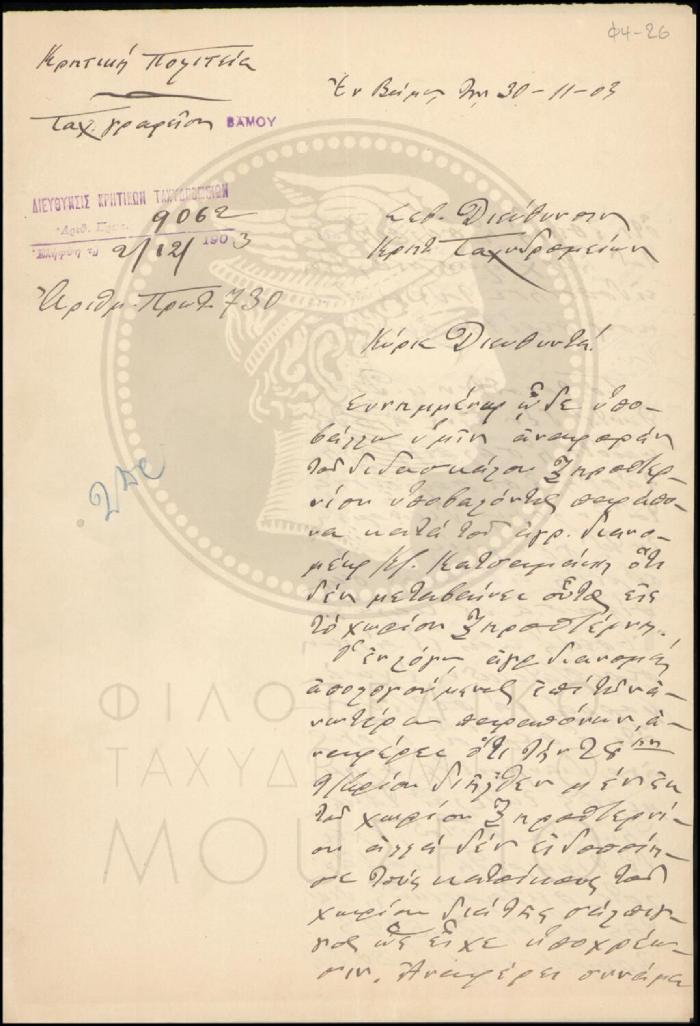 Φ4-26
Κρητική Πολιτεία
Ταχ. γραφείον ΒΑΜΟΥ
Ἐν Βάμῳ τῇ 30-11-03
ΔΙΕΥΘΥΝΣΙΣ ΚΡΗΤΙΚΩΝ ΤΑΧΥΔΡΟΜΕΙΩΝ
Ἀριθ. Πρωτ. 9062
2/12/1903
Ἀριθμ. Πρωτ. 730
Σεβ. Διεύθυνσιν
Κρητ. Ταχυδρομείων
Κύριε Διευθυντά!
Συνημμένως ὧδε ὑπο-
βάλλω ὑμῖν ἀναφοράν
τοῦ διδασκάλου Ξηροστερ-
νίου ὑποβαλόντος παράπο-
να κατά τοῦ ἀγρ. διανο-
μέως Κατσαμάκη ὅτι
δέν μεταβαίνει οὗτος εἰς
τό χωρίον Ξηροστέρνι.
Ὁ ἐν λόγῳ ἀγρ. διανομεύς
ἀπολογούμενος ἐπί τῶν ἀ-
νωτέρω παραπόνων, ἀ-
ναφέρει ὅτι τήν 28ην
τ/τρίου διῆλθεν μέν ἐκ
τοῦ χωρίου Ξηροστερνί-
ου ἀλλά δέν εἰδοποίη-
σε τούς κατοίκους τοῦ
χωρίου διά τῆς σάλπιγ-
γος ὡς εἶχε ὑποχρέω-
σιν. Ἀναφέρει συνάμα
ΦΙΛΟΤΕΛΙΚΟ
ΤΑΧΥΔΡΟΜΙΚΟ
ΜΟΥΣΕΙΟ